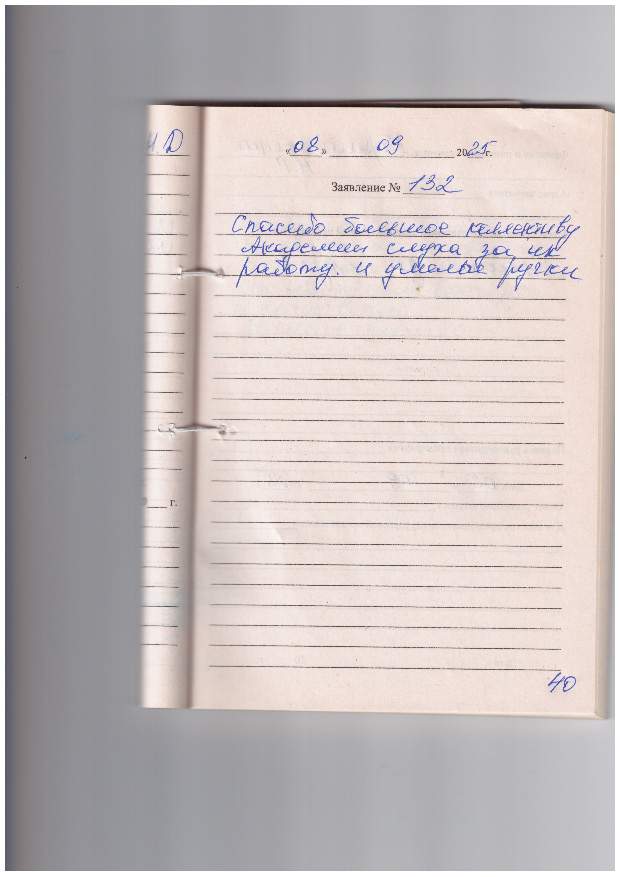 И.Д
«08» 09 2025г.
Заявление № 132
Спасибо большое коллективу
Академии слуха за их
работу. и умелые ручки
г.
40